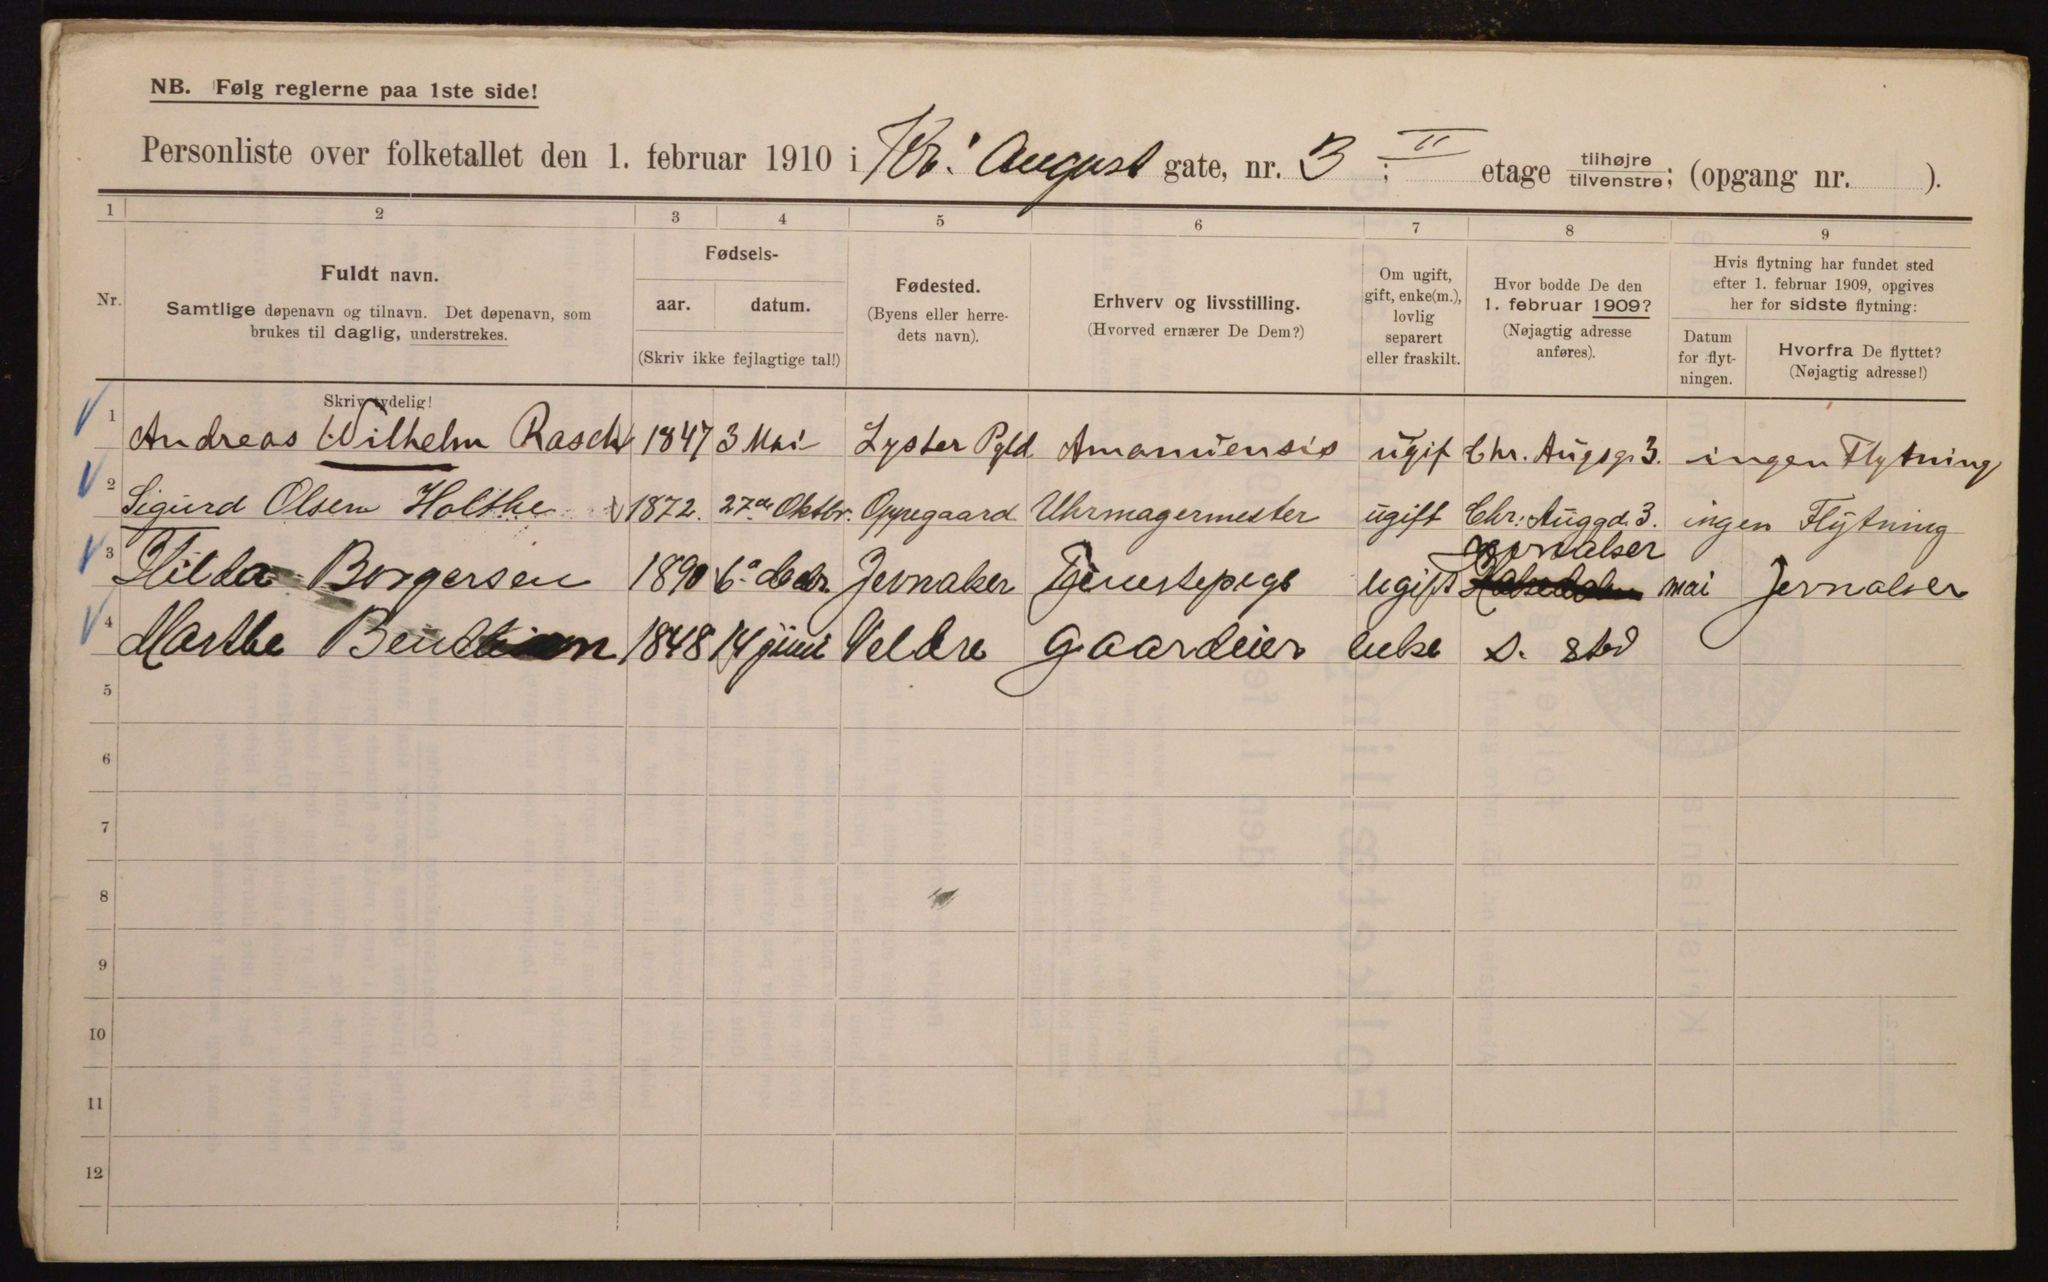 NB. Følg reglerne paa 1ste side!
Personliste over folketallet den 1. februar 1910 i Kr. August gate, nr. 3 : II etage tilhøjre tilvenstre; (opgang nr. ).
1 2 3 4 5 6 7 8 9
Nr.
Fuldt navn.
Samtlige døpenavn og tilnavn. Det døpenavn, som
brukes til daglig, understrekes.
Fødsels-
aar. datum.
(Skriv ikke fejlagtige tal!)
Fødested.
(Byens eller herre-
dets navn).
Erhverv og livsstilling.
(Hvorved ernærer De Dem?)
Om ugift,
gift, enke(m.),
lovlig
separert
eller fraskilt.
Hvor bodde De den
1. februar 1909?
(Nøjagtig adresse
anføres).
Hvis flytning har fundet sted
efter 1. februar 1909, opgives
her for sidste flytning:
Datum
for flyt-
ningen.
Hvorfra De flyttet?
(Nøjagtig adresse!)
Skriv tydelig!
1 Andreas Wilhelm Rasch 1847 3 Mai Lyster Pgld Amanuensis ugif Chr. Augsg. 3. ingen Flytning
2 Sigurd Olsen Holthe 1872. 27de Oktbr. Oppegaard Uhrmagermester ugift Chr: Auggd. 3. ingen Flytning
Jevnalser
3 Hilda Borgersen 1890 6 Jevnaker Tjenestepige ugift mai Jevnalser
4 Marthe 1848 14 juni Veldre Gaardeier enke s. sted
5
6
7
8
9
10
11
12